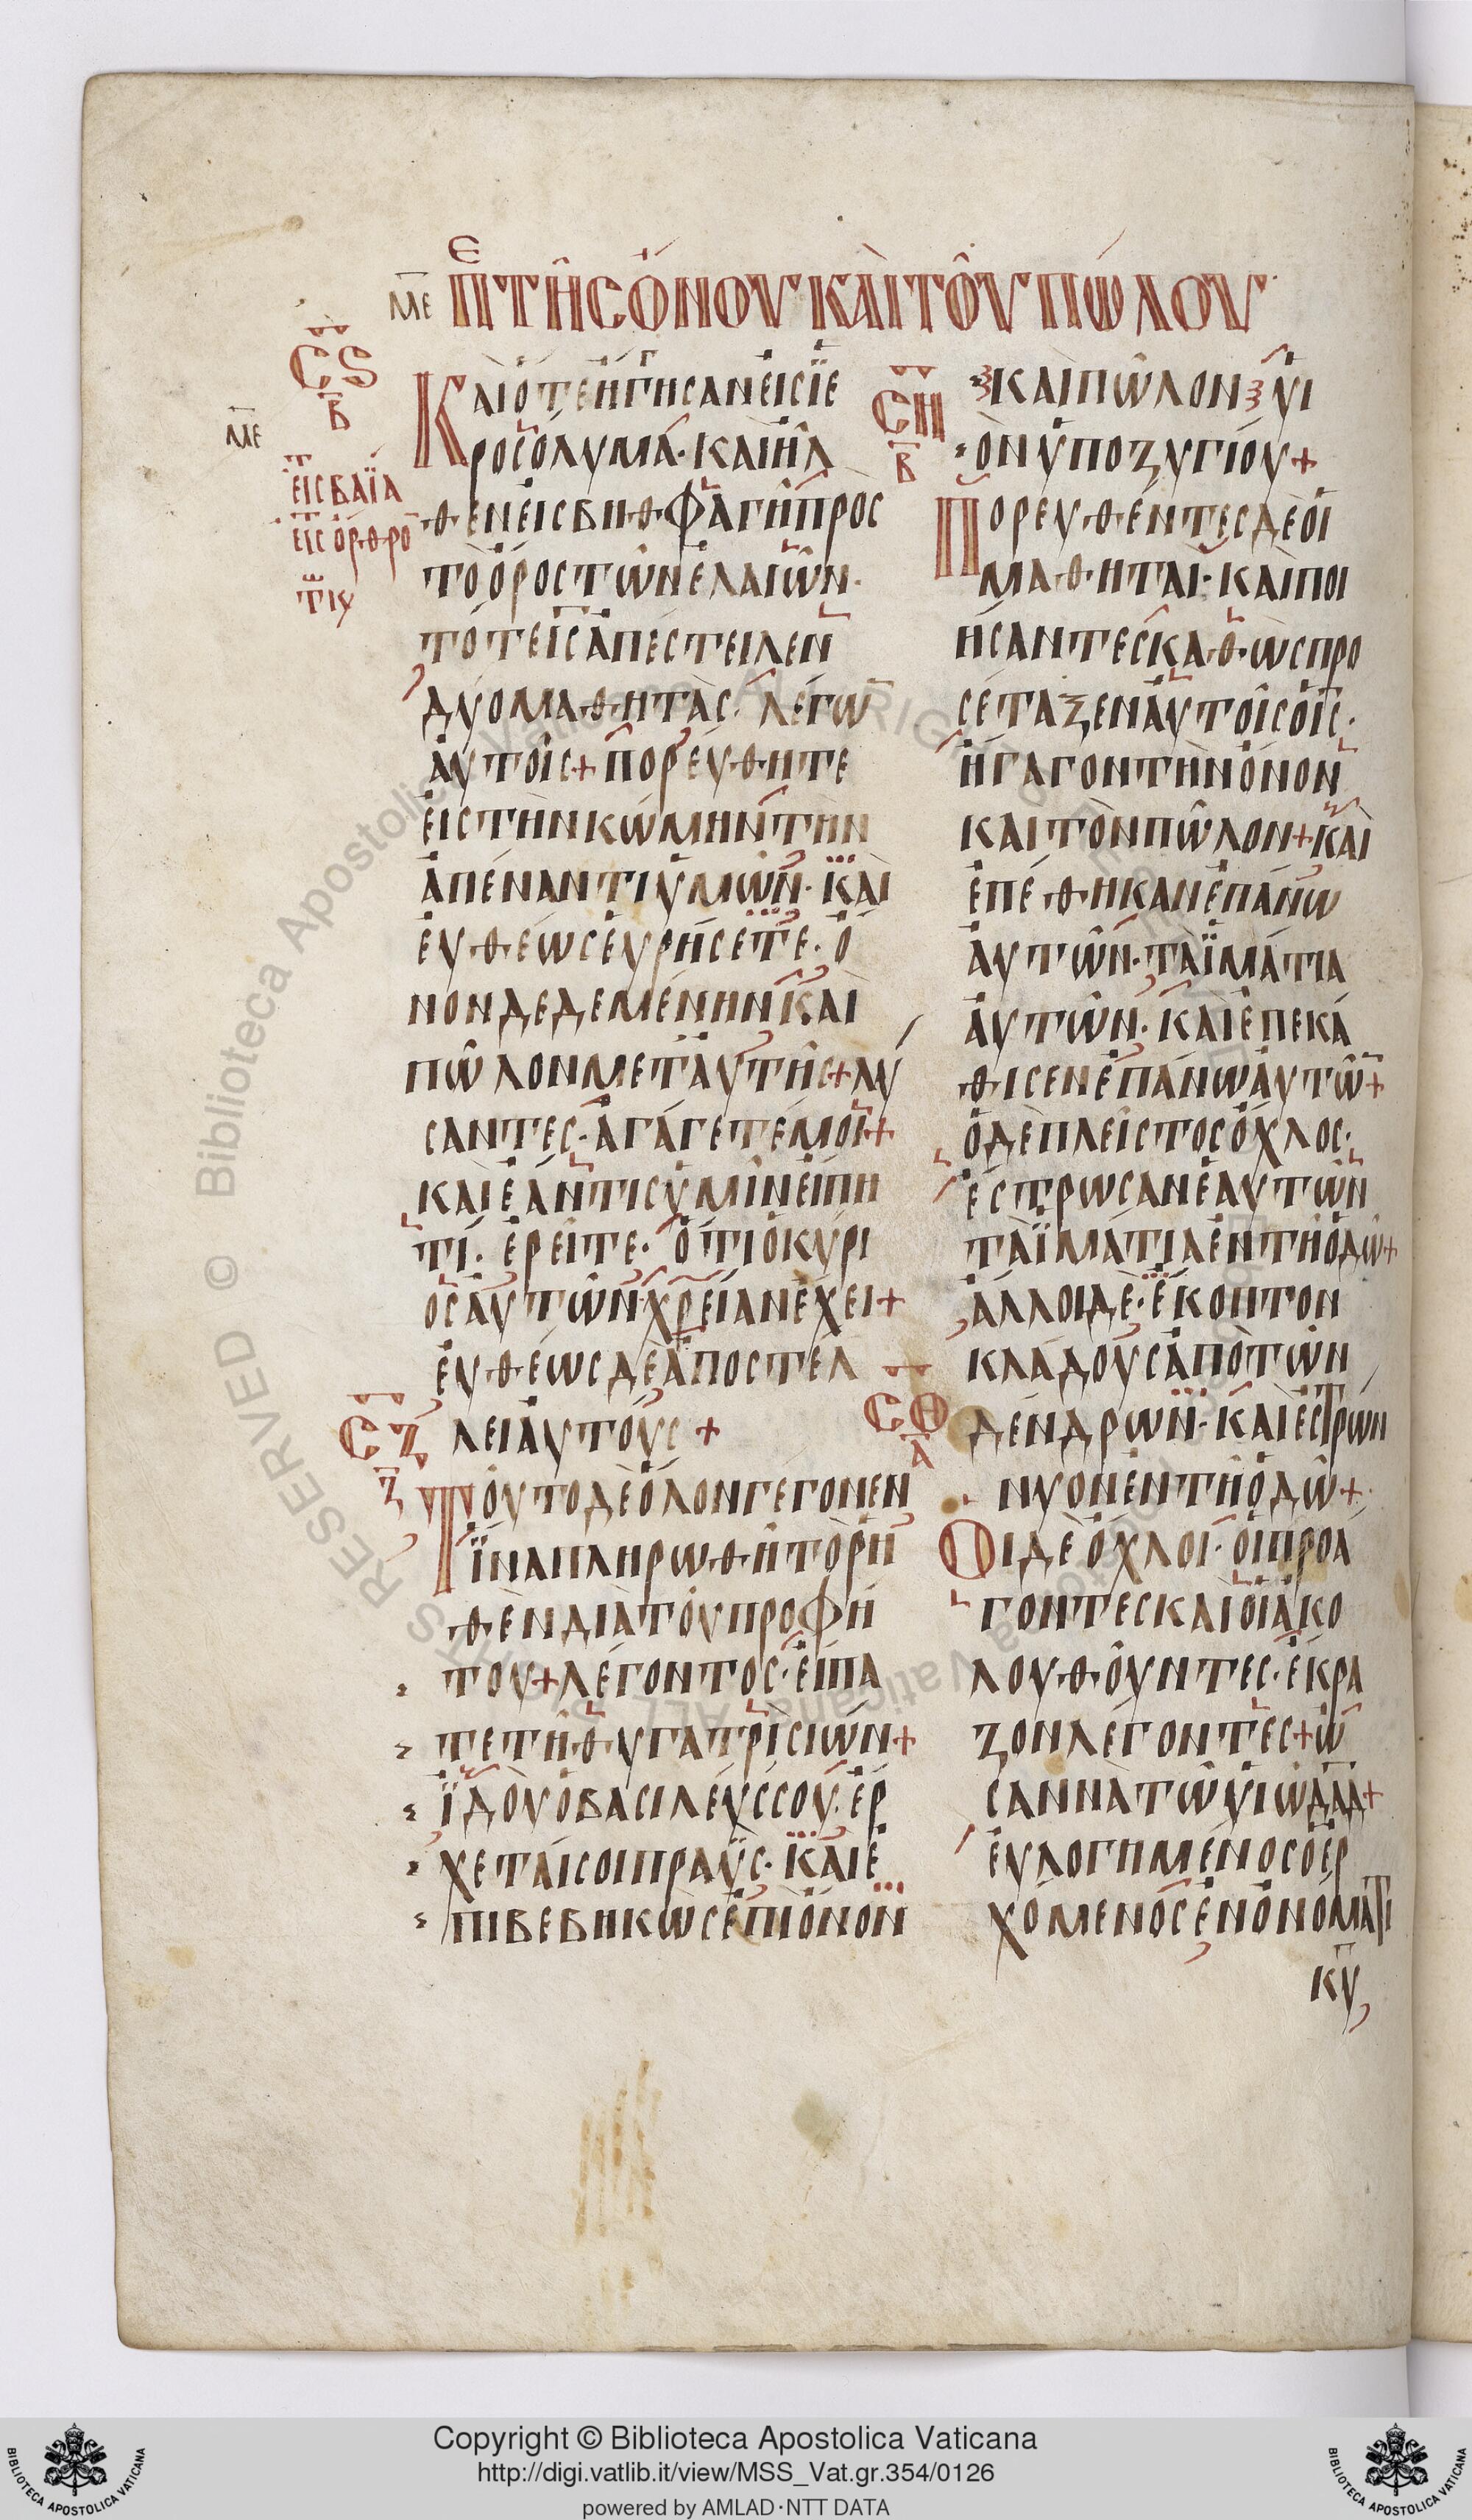 ΜΕ ΕΠΙ ΤΗΣ ὌΝΟΥ ΚΑῚ ΤΟΥ͂ ΠΏΛΟΥ
ϹϚ
Β
ΜΕ
ΕΙϹ ΒΑΪΑ
ΕΙϹ ΟΡΘΡΟ
ΚΑΙΟΤΕΗΓΓΗϹΑΝΕΙϹΪΕ
ΡΟϹΟΛΥΜΑ·ΚΑΙΗΛ
ΘΕΝΕΙϹΒΗΘΦΑΓΗΠΡΟϹ
ΤΟΟΡΟϹΤΩΝΕΛΑΙΩΝ·
ΤΟΤΕΙϹΑΠΕϹΤΕΙΛΕΝ
ΔΥΟΜΑΘΗΤΑϹ·ΛΕΓΩ̅
ΑΥΤΟΙϹ+ΠΟΡΕΥΘΗΤΕ
ΕΙϹΤΗΝΚΩΜΗΝΤΗΝ
ΑΠΕΝΑΝΤΙΥΜΩΝ·ΚΑΙ
ΕΥΘΕΩϹΕΥΡΗϹΕΤΕ·Ο
ΝΟΝΔΕΔΕΜΕΝΗΝΚΑΙ
ΠΩΛΟΝΜΕΤΑΥΤΗϹ+ΛΥ
ϹΑΝΤΕϹ·ΑΓΑΓΕΤΕΜΟΙ+
ΚΑΙΕΑΝΤΙϹΥΜΙΝΕΙΠΗ
ΤΙ·ΕΡΕΙΤΕ·ΟΤΙΟΚΥΡΙ
ΟϹΑΥΤΩΝΧΡΕΙΑΝΕΧΕΙ+
ΕΥΘΕΩϹΔΕΑΠΟϹΤΕΛ
ϹΖ
Ζ
ΛΕΙΑΥΤΟΥϹ+
ΤΟΥΤΟΔΕΟΛΟΝΓΕΓΟΝΕΝ
ΪΝΑΠΛΗΡΩΘΗΤΟΡΗ
ΘΕΝΔΙΑΤΟΥΠΡΟΦΗ
ΤΟΥ+ΛΕΓΟΝΤΟϹ·ΕΙΠΑ
ΤΕΤΗΘΥΓΑΤΡΙϹΙΩΝ+
ΪΔΟΥΟΒΑϹΙΛΕΥϹϹΟΥ·ΕΡ
ΧΕΤΑΙϹΟΙΠΡΑΥϹ·ΚΑΙΕ
ΠΙΒΕΒΗΚΩϹΕΠΙΟΝΟΝ
ϹΗ
Β
ΚΑΙΠΩΛΟΝΥΙ
ΟΝΥΠΟΖΥΓΙΟΥ+
ΠΟΡΕΥΘΕΝΤΕϹΔΕΟΙ
ΜΑΘΗΤΑΙ·ΚΑΙΠΟΙ
ΗϹΑΝΤΕϹΚΑΘΩϹΠΡΟ
ϹΕΤΑΞΕΝΑΥΤΟΙϹΟΙϹ·
ΗΓΑΓΟΝΤΗΝΟΝΟΝ
ΚΑΙΤΟΝΠΩΛΟΝ+ΚΑΙ
ΕΠΕΘΗΚΑΝΕΠΑΝΩ
ΑΥΤΩΝ·ΤΑΪΜΑΤΙΑ
ΑΥΤΩΝ·ΚΑΙΕΠΕΚΑ
ΘΙϹΕΝΕΠΑΝΩΑΥΤΩ̅+
ΟΔΕΠΛΕΙϹΤΟϹΟΧΛΟϹ·
ΕϹΤΡΩϹΑΝΕΑΥΤΩΝ
ΤΑΪΜΑΤΙΑΕΝΤΗΟΔΩ+
ΑΛΛΟΙΔΕ·ΕΚΟΠΤΟΝ
ΚΛΑΔΟΥϹΑΠΟΤΩΝ
ϹΘ
Α
ΔΕΝΔΡΩΝ·ΚΑΙΕϹΤΡΩΝ
ΝΥΟΝΕΝΤΗΟΔΩ+
ΟΙΔΕΟΧΛΟΙ·ΟΙΠΡΟΑ
ΓΟΝΤΕϹΚΑΙΟΙΑΚΟ
ΛΟΥΘΟΥΝΤΕϹ·ΕΚΡΑ
ΖΟΝΛΕΓΟΝΤΕϹ+Ω
ϹΑΝΝΑΤΩΥΙΩΔΑΔ+
ΕΥΛΟΓΗΜΕΝΟϹΟΕΡ
ΧΟΜΕΝΟϹΕΝΟΝΟΜΑΤΙ
ΚΥ
Copyright © Biblioteca Apostolica Vaticana
http://digi.vatlib.it/view/MSS_Vat.gr.354/0126
powered by AMLAD·NTT DATA